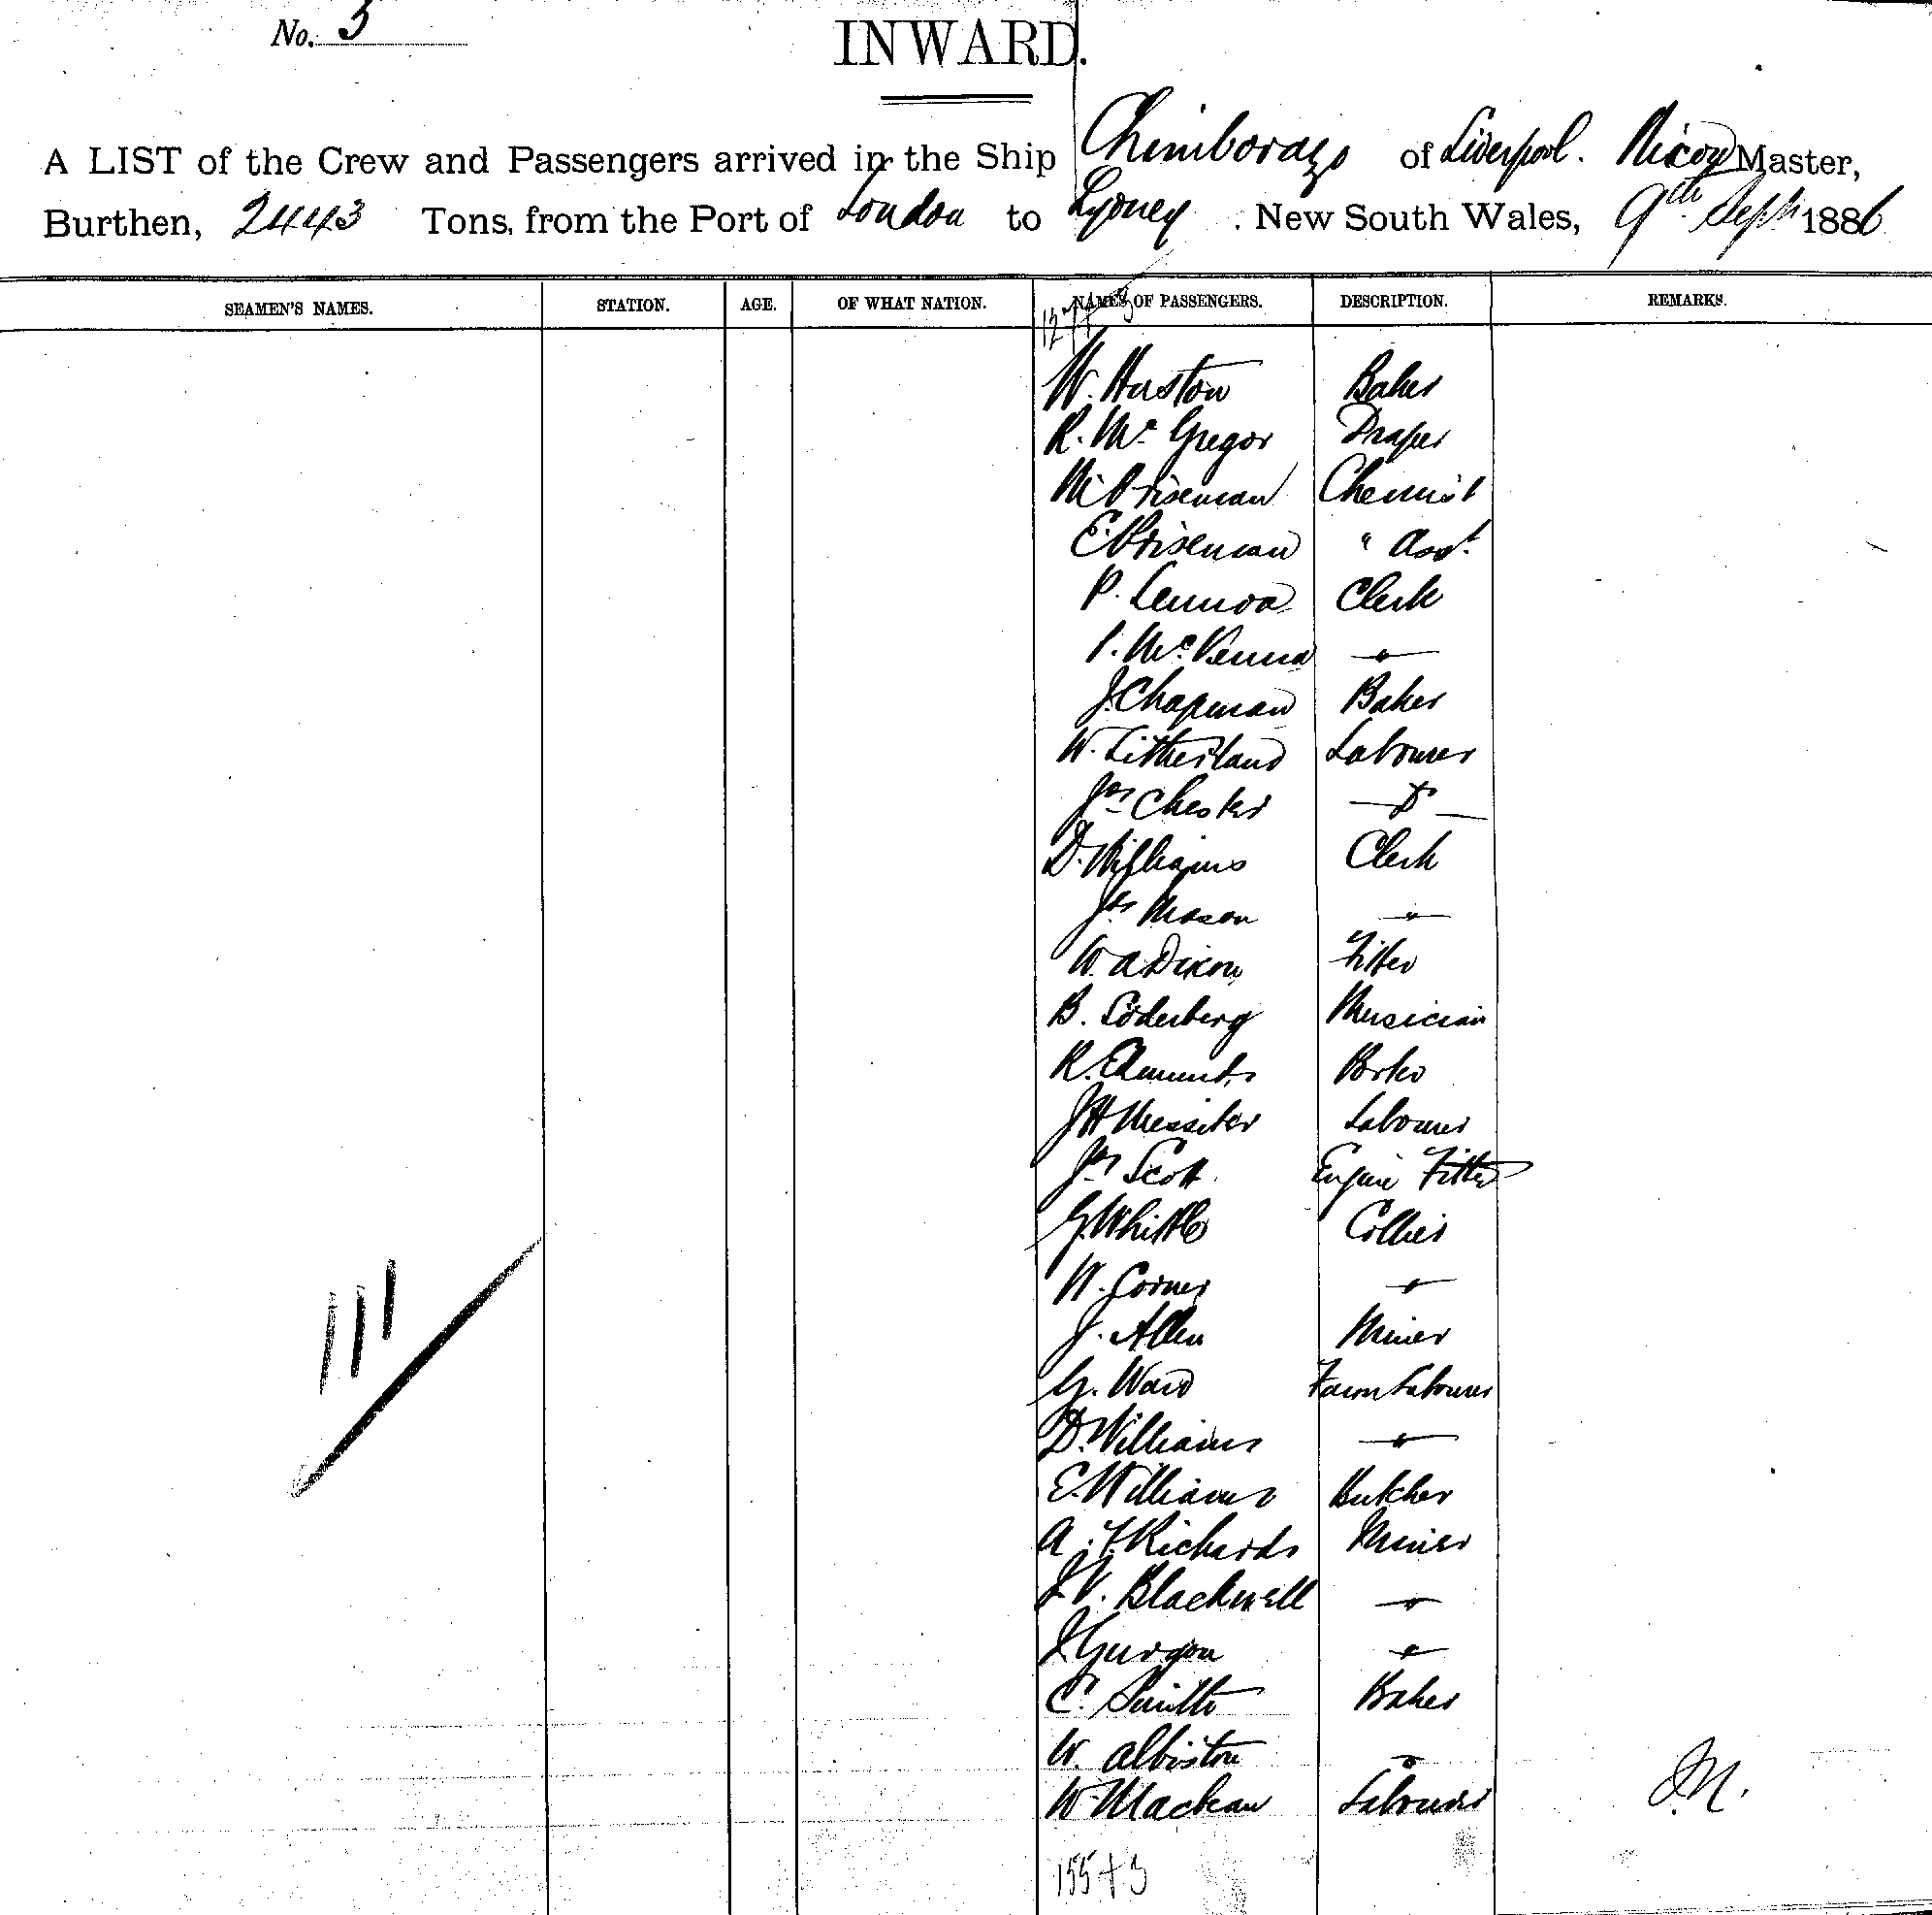 No. 3
INWARD.
A LIST of the Crew and Passengers arrived in the Ship Chimborazo of Liverpool. Master,
Burthen, 2443 Tons, from the Port of London to Sydney. New South Wales, 9th Sept 1886
SEAMEN'S NAMES. STATION. AGE. OF WHAT NATION. NAMES OF PASSENGERS. DESCRIPTION. REMARKS.
W. Huston Baker
R. Mc Gregor Draper
Chemist
E. " Asst.
P. Lennox Clerk
P. McKenna "
J. Chapman Baker
W. Litherland Labourer
Jas Chester Do
D. Williams Clerk
Jas Mason "
W. A Dixon Fitter
B. Söderberg Musician
R. Edmunds Porter
J H Messiter Labourer
Jas Scott Engine Fitter
G. Whittle Collier
W. Corner "
J. Allen Miner
G. Ward Farm Labourer
D. Williams "
E. Williams Butcher
A. F. Richards Miner
J V. Blackwell "
J Gurgon "
C. Smith Baker
W. Albiston "
W. Mackean Labourer
155 + 3